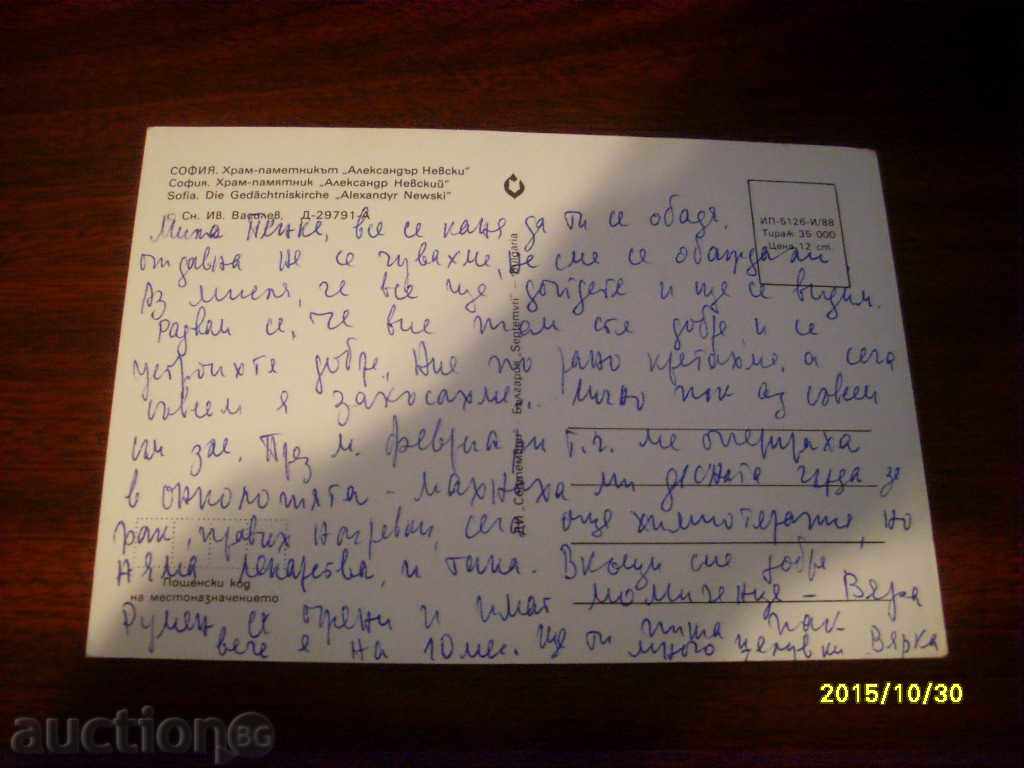 СОФИЯ. Храм-паметникът „Александър Невски"
София. Храм-памятник „Александр Невский"
Sofia. Die Gedächtniskirche „Alexandyr Newski"
Сн. Ив. Василев, Д-29791-А
ИП-5126-И/88
Тираж 35 000
Цена 12 ст.
Мила Пенке, все се каня да ти се обадя.
отдавна не се чувахме, не сме се обаждали
Аз мисля, че все ще дойдете и ще се видим.
Радвам се, че вие там сте добре и се
устроихте добре, Ние по рано кретахме, а сега
съвсем я закъсахме. Лично пък аз съвсем
съм зле. През м. февруари т.г. ме оперираха
в онкологията - махнаха ми дясната гърда за
рак, правих нагревки, сега още химиотерапия, но
няма лекарства, и така. Вкъщи сме добре
Румен се ожени и имат момиченце - Вяра
вече я на 10 мес. Ще ти пиша пак
много целувки Вярка
ДИ „Септември" България „Septemvri" - Bulgaria
Пощенски код
на местоназначението
2015/10/30
auction BG